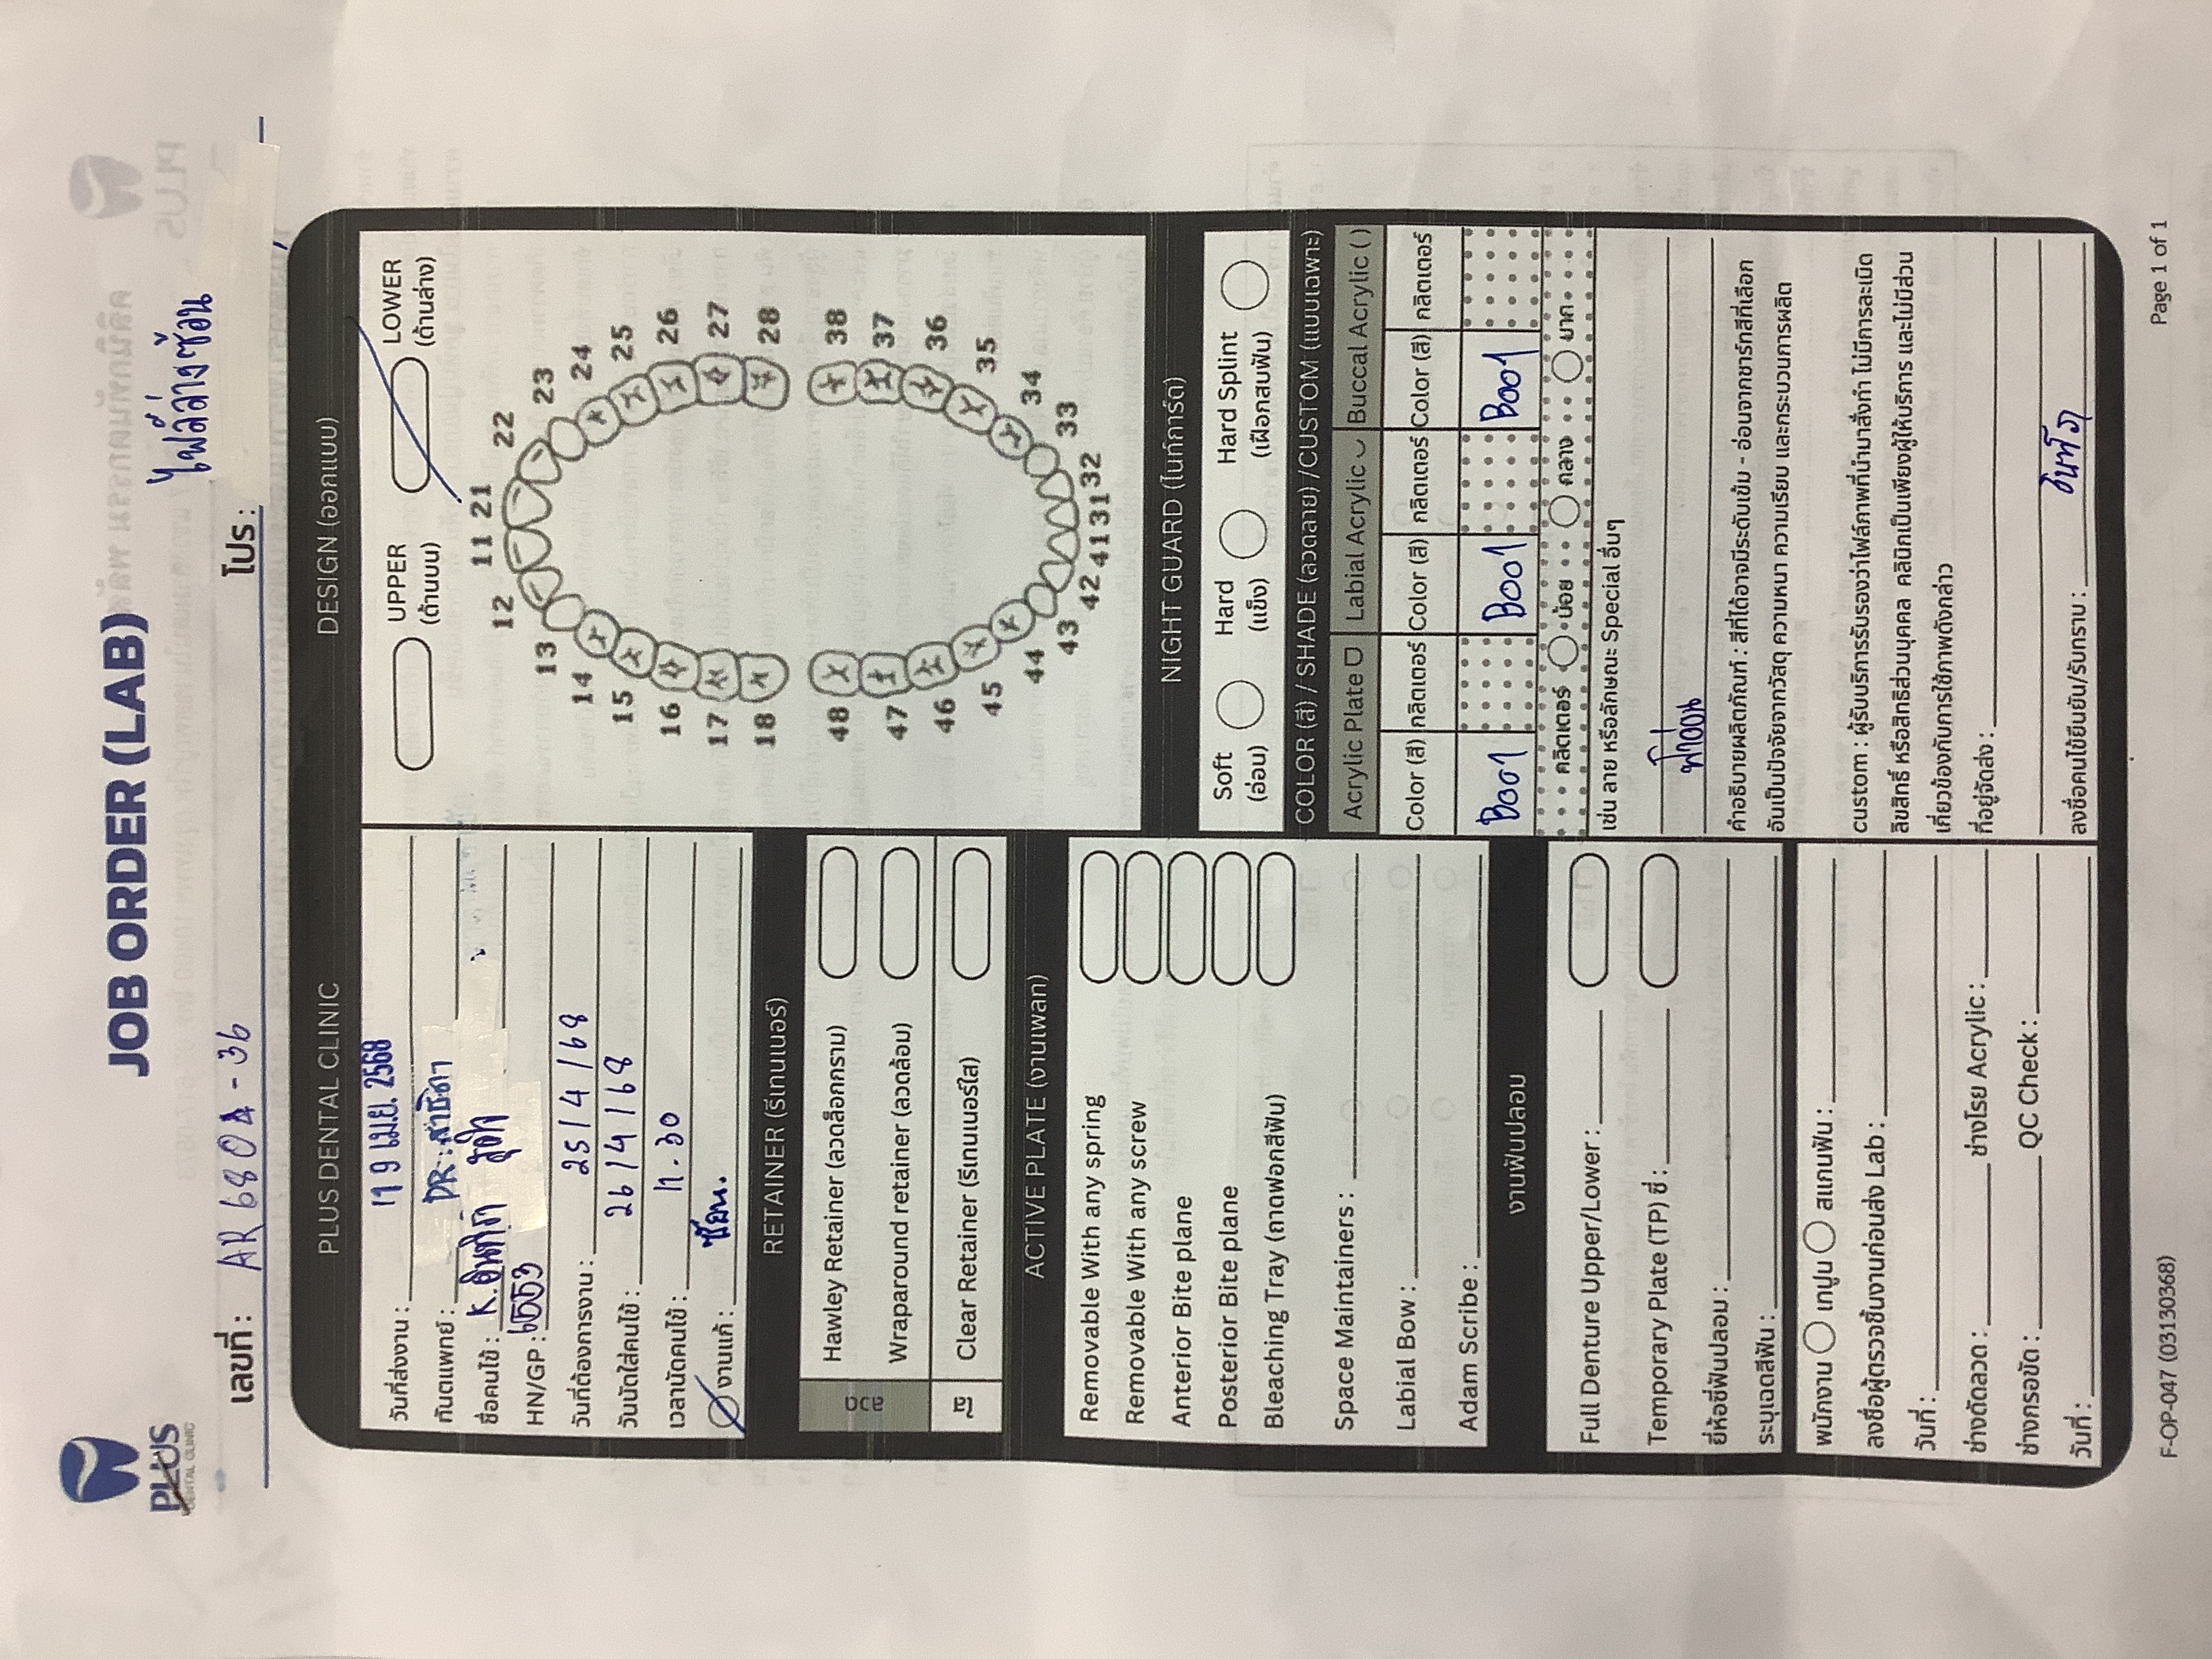 PLUS
DENTAL CLINIC
JOB ORDER (LAB)
ไฟล์ล่างซ้อน
เลขที่ : AR6804-36
โปร :
PLUS DENTAL CLINIC
วันที่ส่งงาน : 19 เม.ย. 2568
ทันตแพทย์ : DR.สาธิตา
ชื่อคนไข้ : K.อินทิรา
HN/GP : 6553
วันที่ต้องการงาน : 25/4/68
วันนัดใส่คนไข้ : 26/4/68
เวลานัดคนไข้ : 11.30
งานแก้ : ซ้อน.
RETAINER (รีเทนเนอร์)
ลวด
Hawley Retainer (ลวดล็อกกราม)
Wraparound retainer (ลวดล้อม)
ใส
Clear Retainer (รีเทนเนอร์ใส)
ACTIVE PLATE (งานเพลท)
Removable With any spring
Removable With any screw
Anterior Bite plane
Posterior Bite plane
Bleaching Tray (ถาดฟอกสีฟัน)
Space Maintainers :
Labial Bow :
Adam Scribe :
งานฟันปลอม
Full Denture Upper/Lower :
Temporary Plate (TP) ซี่ :
ยี่ห้อซี่ฟันปลอม :
ระบุเฉดสีฟัน :
พนักงาน เทปูน สแกนฟัน :
ลงชื่อผู้ตรวจชิ้นงานก่อนส่ง Lab :
วันที่ :
ช่างดัดลวด : ช่างโรย Acrylic :
ช่างกรอขัด : QC Check :
วันที่ :
DESIGN (ออกแบบ)
UPPER (ด้านบน)
LOWER (ด้านล่าง)
11 21
12 22
13 23
14 24
15 25
16 26
17 27
18 28
48 38
47 37
46 36
45 35
44 34
43 33
42 41 31 32
NIGHT GUARD (ไนท์การ์ด)
Soft (อ่อน)
Hard (แข็ง)
Hard Splint (เฝือกสบฟัน)
COLOR (สี) / SHADE (ลวดลาย) /CUSTOM (แบบเฉพาะ)
Acrylic Plate Labial Acrylic Buccal Acrylic ( )
Color (สี) กลิตเตอร์ Color (สี) กลิตเตอร์ Color (สี) กลิตเตอร์
B001 B001 B001
คลิตเตอร์ น้อย กลาง มาก
เช่น ลาย หรือลักษณะ Special อื่นๆ
ฟ้าอ่อน
คำอธิบายผลิตภัณฑ์ : สีที่ได้อาจมีระดับเข้ม - อ่อนจากชาร์ทสีที่เลือก
อันเป็นปัจจัยจากวัสดุ ความหนา ความเรียบ และกระบวนการผลิต
custom : ผู้รับบริการรับรองว่าไฟล์ภาพที่นำมาสั่งทำ ไม่มีการละเมิด
ลิขสิทธิ์ หรือสิทธิส่วนบุคคล คลินิกเป็นเพียงผู้ให้บริการ และไม่มีส่วน
เกี่ยวข้องกับการใช้ภาพดังกล่าว
ที่อยู่จัดส่ง :
ลงชื่อคนไข้ยืนยัน/รับทราบ : อินทิรา
F-OP-047 (03130368)
Page 1 of 1